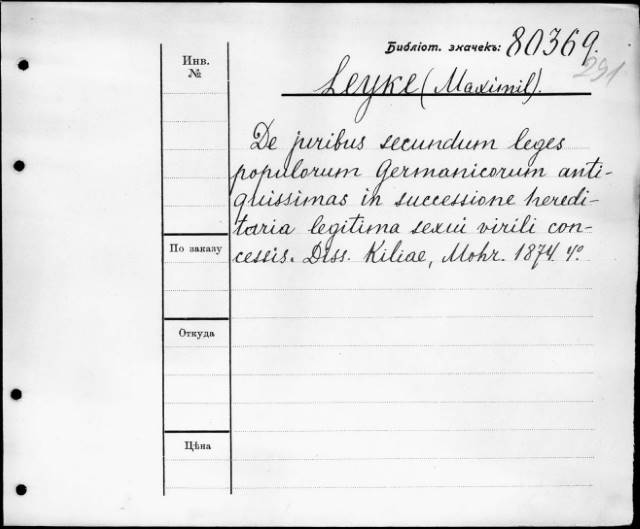 Библіот. значекъ: 80369.
291
Инв.
№
Leyke (Maximil).
De juribus secundum leges
populorum Germanicorum anti-
quissimas in successione heredi-
taria legitima sexui virili con-
cessis. Diss. Kiliae, Mohr. 1874. 4°
По заказу
Откуда
Цѣна